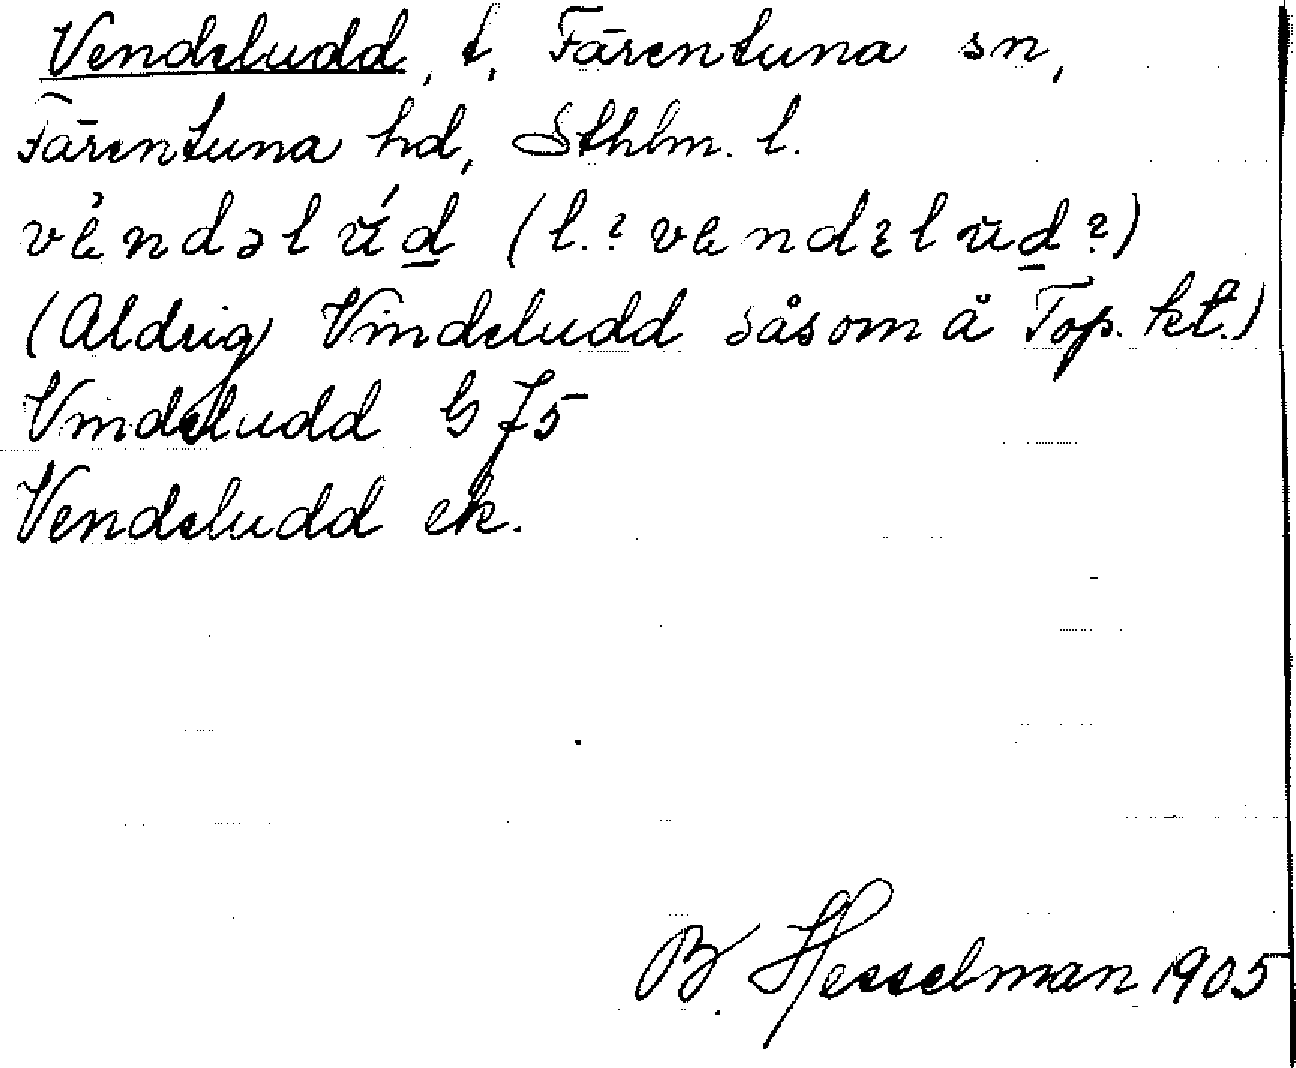 Vendeludd, t, Färentuna sn,
Färentuna hd, Sthlm. l.
vèndəlúd (l.? vendɛlud?)
(Aldrig Vindeludd såsom å Top. kt.)
Vindeludd G 75
Vendeludd ek.
B. Hesselman 1905